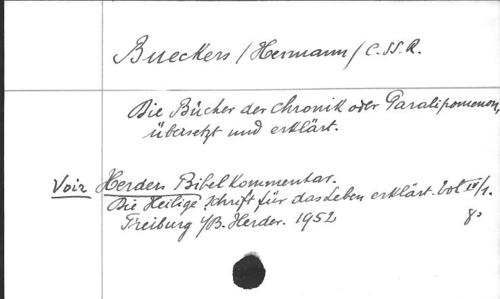 Bueckers /Hermann/ C.SS.R.
Die Bücher der Chronik oder Paralipomenon,
übersetzt und erklärt.
Voir Herders Bibelkommentar.
Die Heilige Schrift für das Leben erklärt. Vol IV/1.
Freiburg i/B. Herder. 1952 8°